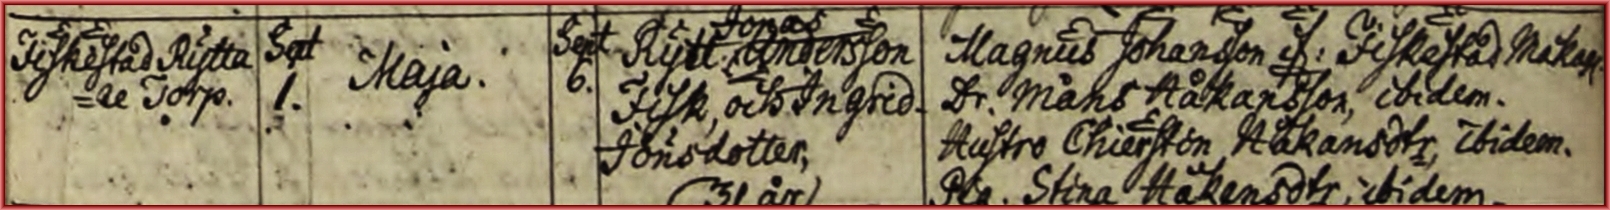 Fiskestad Rÿtta
=re Torp.
Sept
1.
Maja.
Sept
6.
Jonas
Rÿtt. Andersson
Fisk, och Ingrid
Jönsdotter,
(31 år)
Magnus Johansson if: Fiskestad
Dr. Måns Håkansson, ibidem.
Hustro Chierstin Håkansdtr, ibidem.
Pig. Stina Håkansdtr, ibidem.